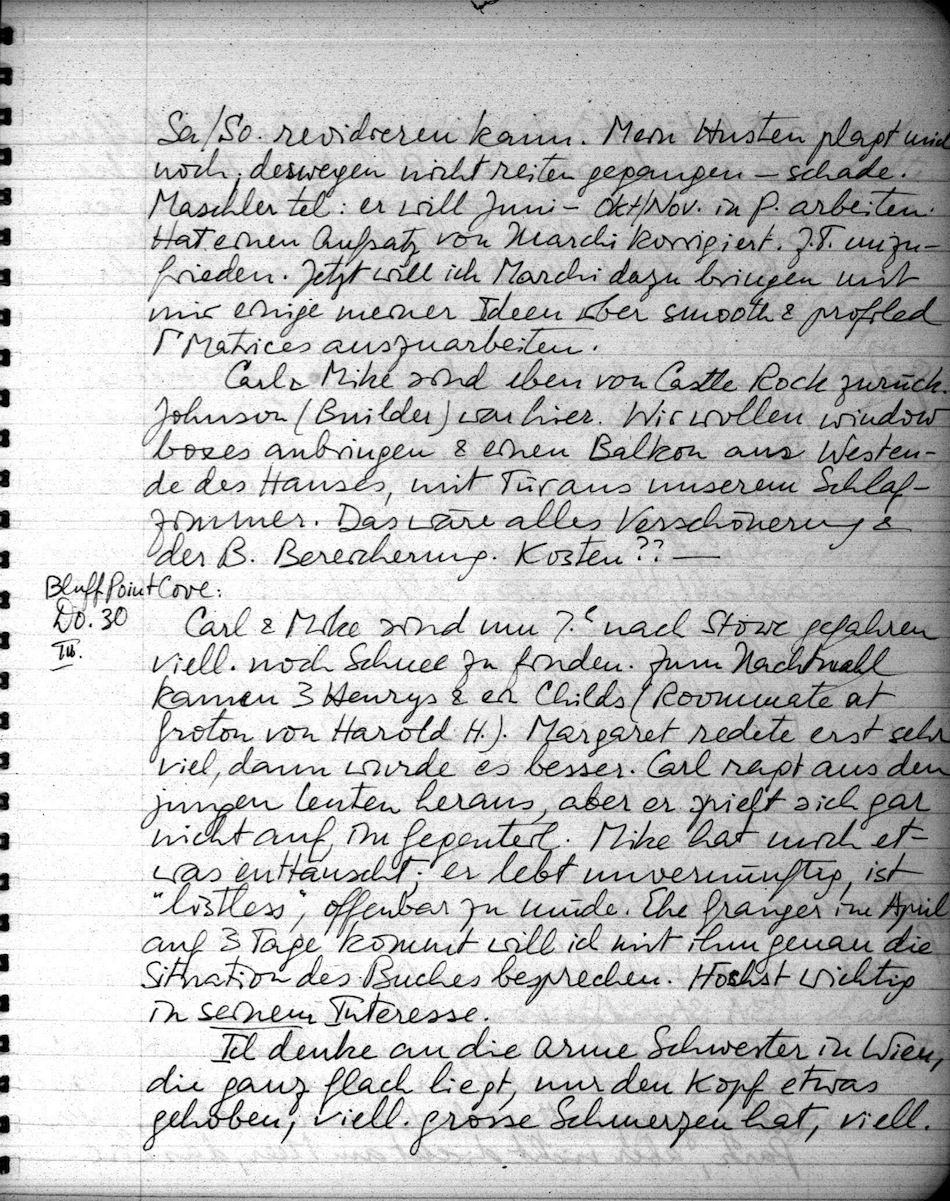 Sa/So. revidieren kann. Mein Husten plagt mich
noch, deswegen nicht reiten gegangen – schade.
Maschler tel: er will Juni – Okt/Nov. in P. arbeiten.
Hat einen Aufsatz von Marchi korrigiert. Z.T. unzu-
frieden. Jetzt will ich Marchi dazu bringen mit
mir einige meiner Ideen über smooth & profiled
Matrices auszuarbeiten.
Carl & Mike sind eben von Castle Rock zurück.
Johnson (Builder) war hier. Wir wollen window
boxes anbringen & einen Balkon am Westen-
de des Hauses, mit Tür aus unserem Schlaf-
zimmer. Das wäre alles Verschönerung &
der B. Bereicherung. Kosten?? —
Bluff Point Cove:
Do. 30
III.
Carl & Mike sind um 7.ᶜ nach Stowe gefahren
viell. noch Schnee zu finden. Zum Nachtmahl
kamen 3 Henrys & ein Childs (Roommate at
Groton von Harold H.). Margaret redete erst sehr
viel, dann wurde es besser. Carl ragt aus den
jungen Leuten heraus, aber er spielt sich gar
nicht auf, im Gegenteil. Mike hat mich et-
was enttäuscht; er lebt unvernünftig, ist
"listless", offenbar zu müde. Ehe Granger im April
auf 3 Tage kommt will ich mit ihm genau die
Situation des Buches besprechen. Höchst wichtig
in seinem Interesse.
Ich denke an die arme Schwester in Wien,
die ganz flach liegt, nur den Kopf etwas
gehoben, viell. grosse Schmerzen hat, viell.